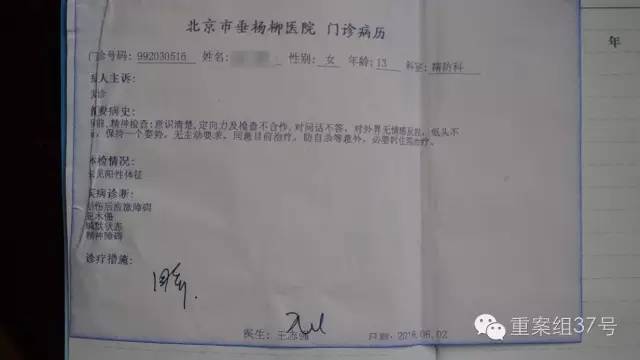 北京市垂杨柳医院 门诊病历
门诊号码: 992030516 姓名: 性别: 女 年龄: 13 科室: 精防科
病人主诉:
复诊
简要病史:
目前,精神检查:意识清楚,定向力及检查不合作,对问话不答,对外界无情感反应,低头不
保持一个姿势,无主动要求,同意目前治疗,防自杀等意外,必要时住院治疗。
体检情况:
未见阳性体征
疾病诊断:
创伤后应激障碍
亚木僵
缄默状态
精神障碍
诊疗措施:
医生: 日期: 2016.06.02
年
重案组37号